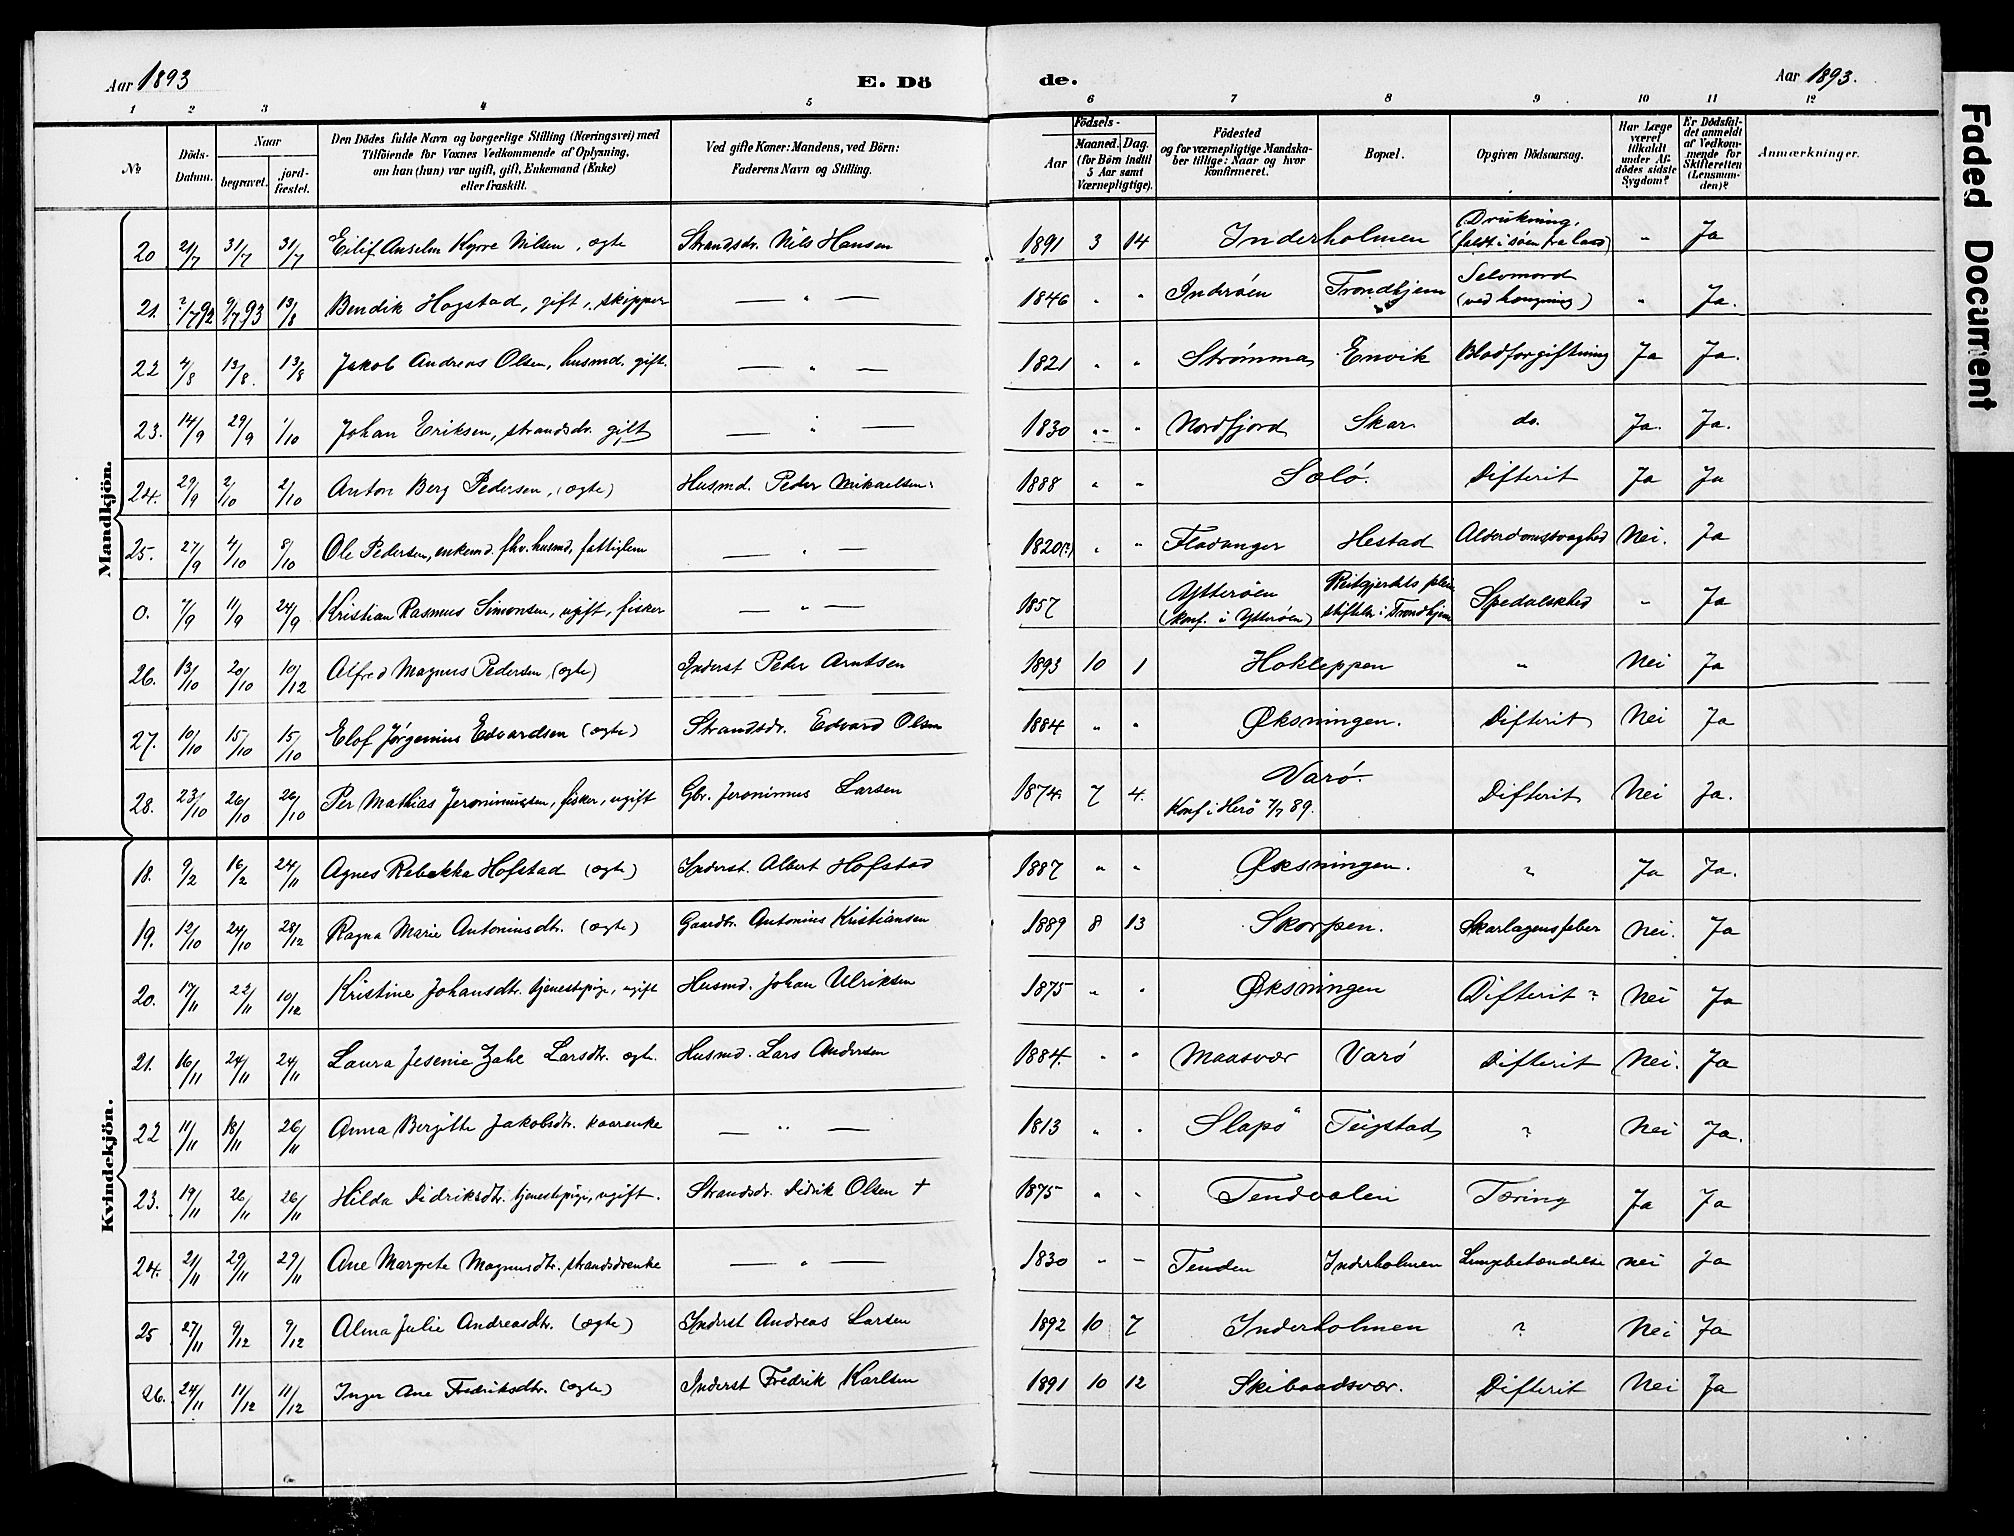 Aar 1893
E. Dö
de.
Aar 1893.
1 2 3 4 5 6 7 8 9 10 11 12
№
Döds-Datum.
Naar
begravet.
jord-fæstet.
Den Dödes fulde Navn og borgerlige Stilling (Næringsvei) med
Tilföiende for Voxnes Vedkommende af Oplysning,
om han (hun) var ugift, gift, Enkemand (Enke)
eller fraskilt.
Ved gifte Koner: Mandens, ved Börn:
Faderens Navn og Stilling.
Födsels-
Aar
Maaned. Dag.
(for Börn indtil
5 Aar samt
Værnepligtige).
Födested
og for værnepligtige Mandska-
ber tillige: Naar og hvor
konfirmeret.
Bopæl.
Opgiven Dödsaarsag.
Har Læge
været
tilkaldt
under Af-
dödes sidste
Sygdom?
Er Dödsfal-
det anmeldt
af Vedkom-
mende for
Skifteretten
(Lensman-
den)?
Anmærkninger.
Mandkjön.
20 21/7 31/7 31/7 Eilif Anselm Kyrre Nilsen, ægte Strandsdr. Nils Hansen 1891 3 14 Inderholmen Drukning, (faldt i søen fra land) " Ja
21. ?/792 9/793 13/8 Bendik Hogstad, gift, skipper — " — 1846 " " Inderøen Trondhjem Selvmord (ved hængning) " Ja.
22 4/8 13/8. 13/8 Jakob Andreas Olsen, husmd. gift. — " — 1821 " " Strømma Envik Blodforgiftning Ja Ja.
23. 14/9 29/9 1/10 Johan Eriksen, strandsdr. gift — " — 1830 " " Nordfjord Skar do. Ja. Ja.
24. 29/9 2/10 2/10 Anton Berg Pedersen, (ægte) Husmd. Peder Mikaelsen. 1888 " " Sælø. Difterit Ja Ja
25. 27/9 4/10 8/10 Ole Pedersen, enkemd. fhv. husmd, fattiglem — " — 1820(?) " " Fladanger Hestad Alderdomssvaghed Nei. Ja
0. 7/9 11/9 24/9 Kristian Rasmus Simonsen, ugift, fisker — " — 1857 Ytterøen (konf. i Ytterøen) Reitgjerdets pleie stiftelse i Trondhjem Spedalskhed " Ja
26. 13/10 20/10 10/12 Alfred Magnus Pedersen, (ægte) Inderst Peder Arntsen 1893 10 1 Hokleppen " Nei Ja
27. 10/10 15/10 15/10 Elof Jørgenius Edvardsen (ægte) Strandsdr. Edvard Olsen 1884 " " Øksningen. Difterit Nei Ja
28. 23/10 26/10 26/10 Per Mathias Jeronimussen, fisker, ugift Gbr. Jeronimus Larsen 1874. 7 4. Varø. Konf. i Herø 7/7 89. Difterit Nei Ja.
Kvindekjön.
18. 9/2 16/2 24/11 Agnes Rebekka Hofstad (ægte) Inderst. Albert Hofstad 1887 " " Øksningen. ? Ja Ja.
19. 12/10 24/10 28/12 Ragna Marie Antoniusdtr. (ægte) Gaardbr. Antonius Kristiansen 1889 8 13 Skorpen. Skarlagensfeber Nei. Ja
20. 17/11 22/11 10/12 Kristine Johansdtr. tjenestpige, ugift Husmd. Johan Ulriksen 1875 " " Øksningen Difterit ? Nei Ja
21. 16/11 24/11 24/11 Laura Jesenie Zahl Larsdtr. ægte. Husmd. Lars Andersen 1884. " " Maasvær Varø Difterit Nei. Ja
22 11/11 18/11 26/11 Anna Bergitte Jakobsdtr. kaarenke — " — 1813 " " Slapø Teigstad ? Nei Ja.
23. 19/11 26/11 26/11 Hilda Didriksdtr. tjenestpige, ugift. Strandsdr. Didrik Olsen + 1875 " " Tendvalen Tæring Ja Ja
24. 21/11 29/11 29/11 Ane Margrete Magnusdtr. strandsdrenke — " — 1830 " — Tenden Inderholmen Lungebetændelse nei Ja
25 27/11 9/12 9/12 Alma Julie Andreasdtr. (ægte) Inderst Andreas Larsen 1892 10 7 Inderholmen ? Nei Ja
26. 24/11 11/12 11/12 Inger Ane Fredriksdtr. (ægte) Inderst Fredrik Karlsen 1891 10 12 Skibaadsvær. Difterit Nei Ja
Faded Document